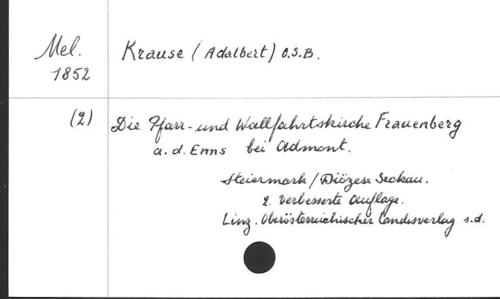 Mel. Krause (Adalbert) O.S.B.
1852
(2) Die Pfarr- und Wallfahrtskirche Frauenberg
a. d. Enns bei Admont.
Steiermark / Diözese Seckau.
2. verbesserte Auflage.
Linz. Oberösterreichischer Landesverlag s.d.